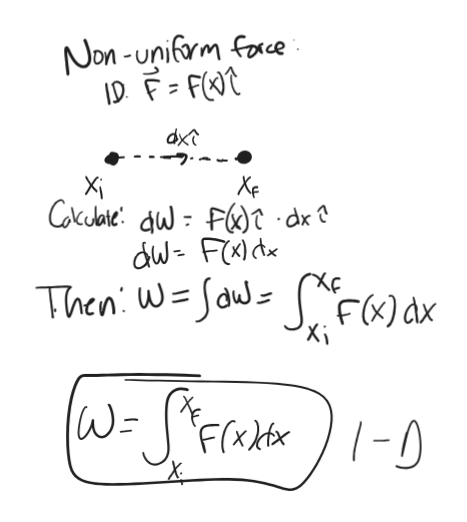 Non-uniform force:
1D. F⃗ = F(x)î
dxî
xi xf
Calculate: dW = F(x)î · dx î
dW = F(x)dx
Then: W = ∫dW = ∫xi^xf F(x) dx
W = ∫xi^xf F(x)dx 1-D